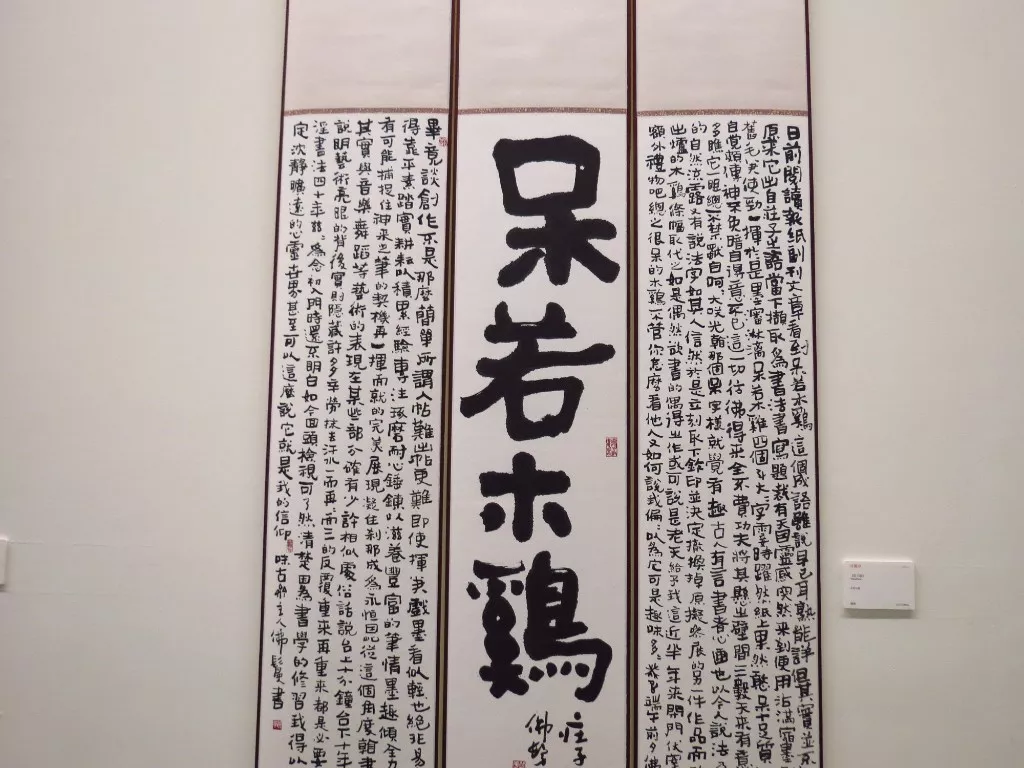 日前閱讀報紙副刊文章看到呆若木鷄這個成語雖說早已耳熟能詳但其實並不
原來它出自莊子是語當下擷取為書法書寫題材有天靈感突然來到使用沾滿宿墨
舊毛使勁一揮於是墨瀋淋漓呆若木雞四個斗大字霎時躍然紙上果然憨呆十足質
自覺頗傳神不免暗自得意不已這一切彷彿得來全不費功夫將其懸出壁間三數天來有意
多瞧它一眼總不禁獃自呵大笑光那個呆字樣就覺有趣古人有言書者心畫也以令人說法
的自然流露又有說法字如其人信然於是立刻取下鈐印並決定撤換掉原擬參展的另一件作品而
出爐的木鷄條幅取代之如是偶然欲書的偶得之作或可說是老天給予我這近半年來閉門伏案
額外禮物吧總之很呆的木鷄不管你怎麼看他人又如何說我偏以為它可是趣味多端午前夕佛
呆若木鷄
莊子
佛髯
畢竟談創作不是那麼簡單所謂入帖難出帖更難即使揮灑戲墨看似輕也絕非易
得靠平素踏實耕耘以積累經驗專注琢磨耐心錘鍊以滋養豐富的筆情墨趣傾全力
有可能捕捉住神來之筆的契機再一揮而就的完美展現凝住剎那成為永恒因以從這個角度翰書
其實與音樂舞蹈等藝術的表現在某些部分確有少許相似處俗話說台上十分鐘台下十年
說明藝術亮眼的背後實則隱藏許許多多辛勞抹去汗水一而再再而三的反覆重來再重來都是必要
淫書法四十年茲為念初入門時還不明白如今回頭檢視可了然清楚因為書學的修習我得以
定沈靜曠達的心靈世界甚至可以這麼說它就是我的信仰 味古齋主人佛髯書